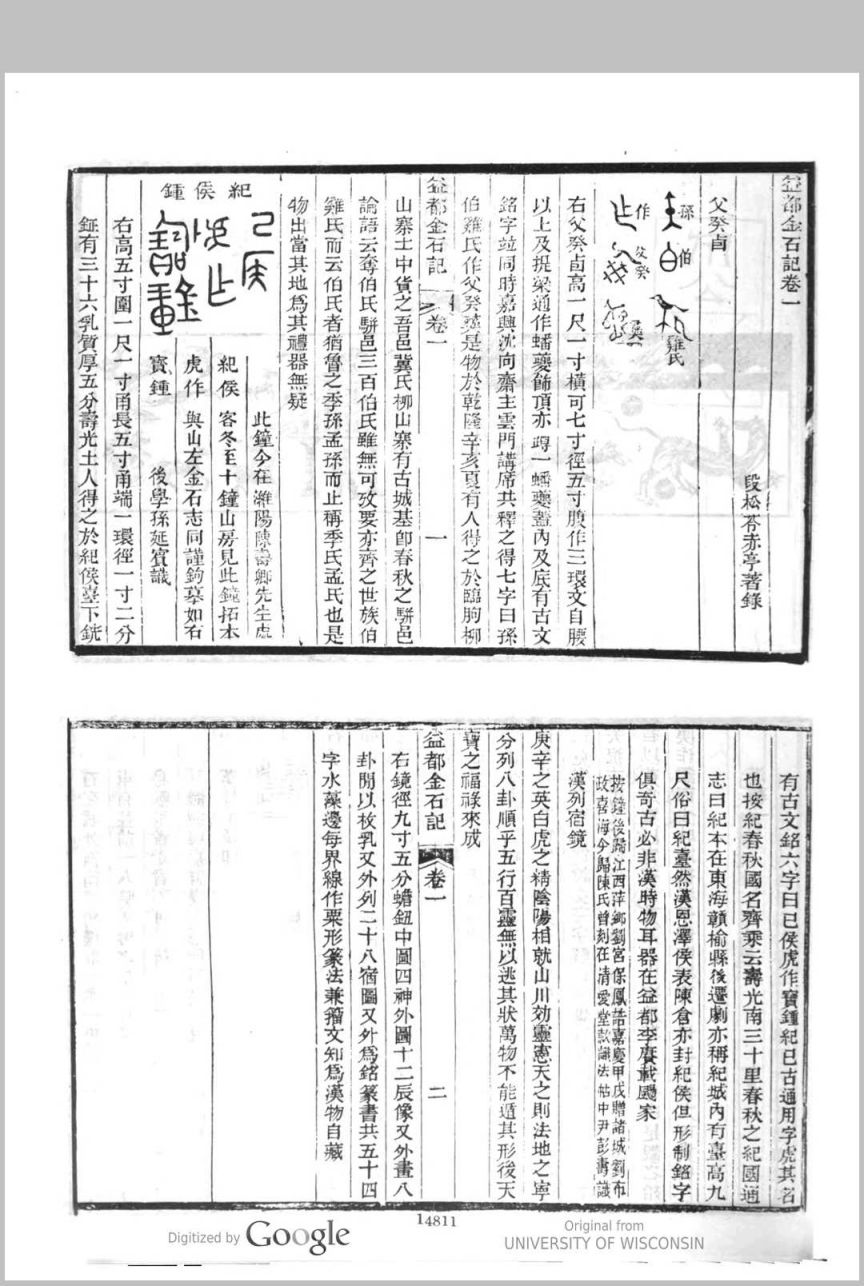 益都金石記卷一
段松苓赤亭著錄
父癸卣
孫 伯 雞氏
作 父癸 彝
右父癸卣高一尺一寸橫可七寸徑五寸腹作三環文自腰
以上及提梁通作蟠夔飾頂亦蹲一蟠夔蓋內及底有古文
銘字竝同時嘉興沈向齋主雲門講席共釋之得七字曰孫
伯雞氏作父癸彝是物於乾隆辛亥夏有人得之於臨朐柳
益都金石記 卷一 一
山寨土中貨之吾邑冀氏柳山寨有古城基卽春秋之駢邑
論語云奪伯氏駢邑三百伯氏雖無可攷要亦齊之世族伯
雞氏而云伯氏者猶魯之季孫孟孫而止稱季氏孟氏也是
物出當其地爲其禮器無疑
紀侯鍾
此鐘今在濰陽陳壽卿先生處
紀侯 客冬至十鐘山房見此鐘拓本
虎作 與山左金石志同謹鉤摹如右
寶鍾 後學孫延賓識
右高五寸圍一尺一寸甬長五寸甬端一環徑一寸二分
鉦有三十六乳質厚五分壽光土人得之於紀侯臺下銑
有古文銘六字曰己侯虎作寶鍾紀己古通用字虎其名
也按紀春秋國名齊乘云壽光南三十里春秋之紀國通
志曰紀本在東海贛榆縣後遷劇亦稱紀城內有臺高九
尺俗曰紀臺然漢恩澤侯表陳倉亦封紀侯但形制銘字
俱奇古必非漢時物耳器在益都李廣載颺家
按鐘後歸江西萍鄉劉宮保鳳誥嘉慶甲戌贈諸城劉布
政喜海今歸陳氏曾刻在清愛堂款識法帖中尹彭壽識
漢列宿鏡
庚辛之英白虎之精陰陽相就山川効靈憲天之則法地之寧
分列八卦順乎五行百靈無以逃其狀萬物不能遁其形後天
寶之福祿來成
益都金石記 卷一 二
右鏡徑九寸五分蟾鈕中圖四神外圖十二辰像又外畫八
卦閒以枚乳又外列二十八宿圖又外爲銘篆書共五十四
字水藻邊每界線作粟形篆法兼籀文知爲漢物自藏
14811
Digitized by Google
Original from
UNIVERSITY OF WISCONSIN